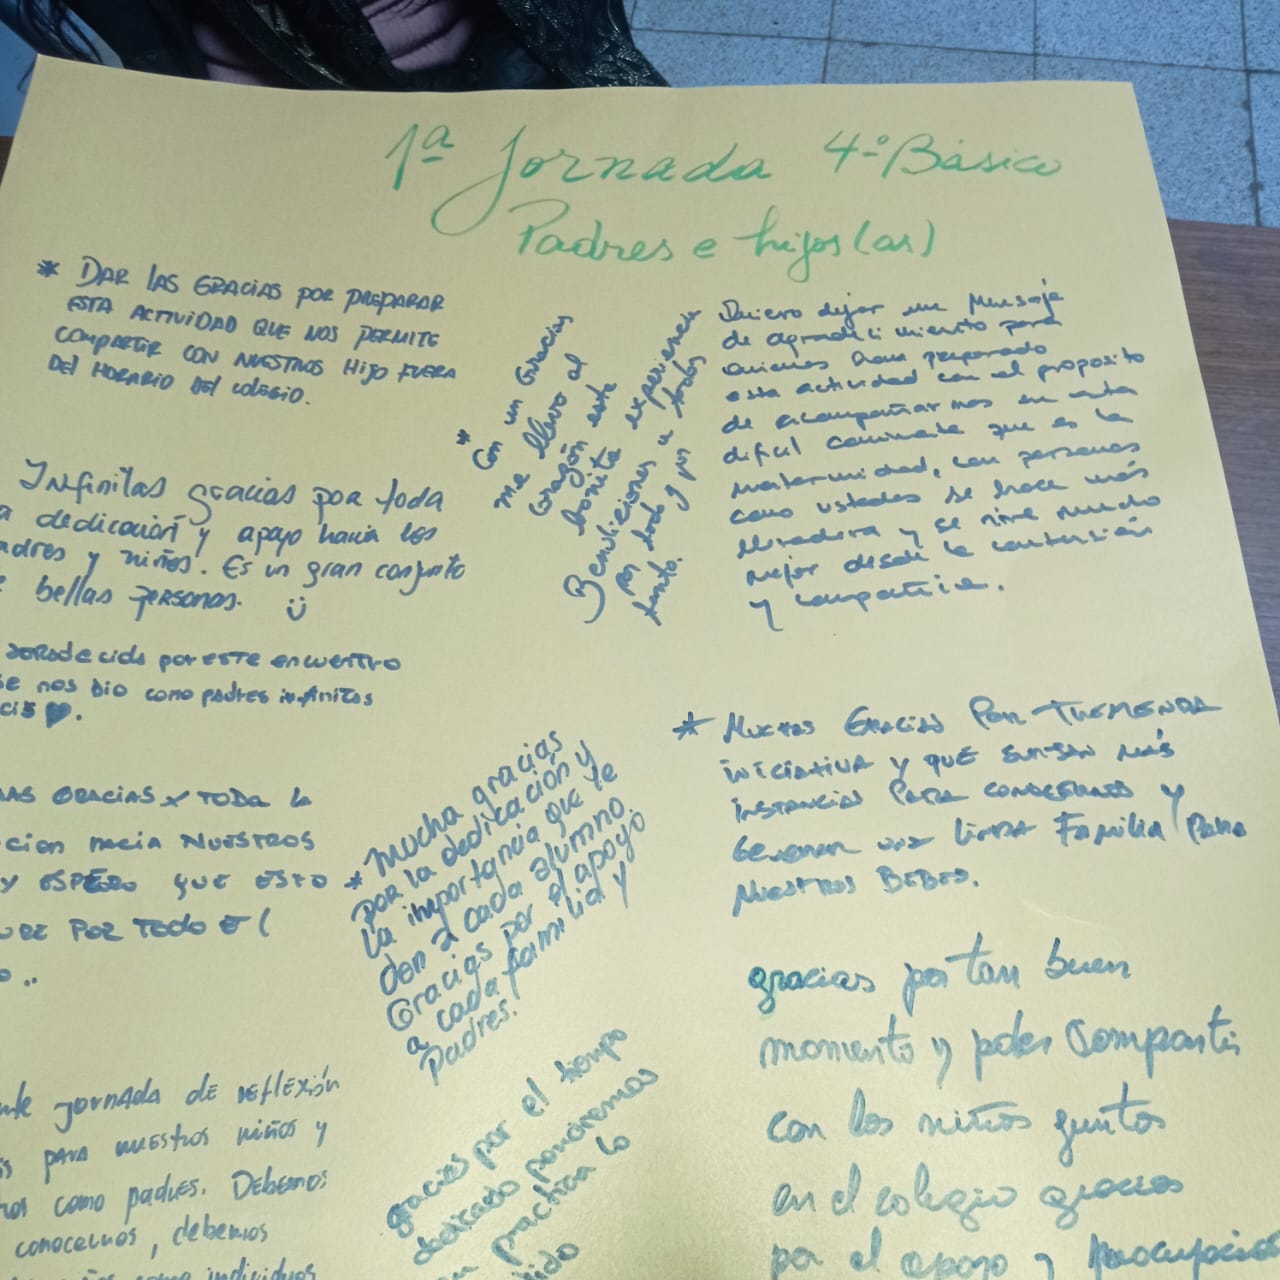 1ª Jornada 4º Básico
Padres e hijos(as)
* DAR LAS GRACIAS POR PREPARAR
ESTA ACTIVIDAD QUE NOS PERMITE
COMPARTIR CON NUESTROS HIJO FUERA
DEL HORARIO DEL COLEGIO.
Infinitas gracias por toda
a dedicación y apoyo hacia los
adres y niños. Es un gran conjunto
bellas personas.
por este encuentro
se nos dio como padres infinitas
GRACIAS X TODA LA
cion hacia NUESTROS
Y ESPERO QUE ESTO
POR TODO E(
Jornada de reflexión
para nuestros niños y
como padres. Debemos
conocernos, debemos
como individuos
* Con un Gracias
me llevo al
corazón este
bonita experiencia
Bendiciones a todos
por todo y por
tanto.
* Mucha gracias
por la dedicación y
la importancia que le
dan a cada alumno.
Gracias por el apoyo
a cada familia y
Padres.
gracias por el tiempo
dedicado pondremos
en practica lo
Quiero dejar un Mensaje
de agradecimiento para
quienes han preparado
esta actividad con el proposito
de acompañarnos en esta
dificil caminata que es la
maternidad, con personas
como ustedes se hace más
llevadera y se vive mucho
mejor desde la contención
y compañia.
* Muchas Gracias Por Tremenda
iniciativa y que surjan más
instancias Para conocernos y
Generar una linda Familia Para
Nuestros Bebes.
gracias por tan buen
momento y poder Compartir
con los niños juntos
en el colegio gracias
por el apoyo y